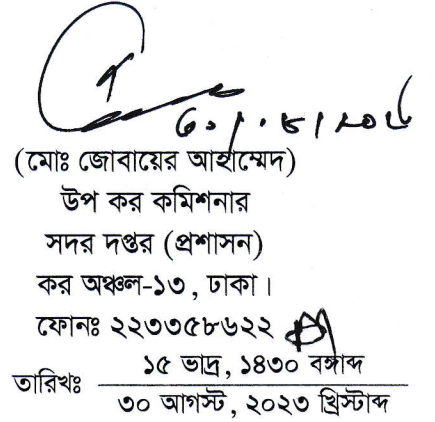 (মোঃ জোবায়ের আহাম্মেদ)
উপ কর কমিশনার
সদর দপ্তর (প্রশাসন)
কর অঞ্চল-১৩, ঢাকা।
ফোনঃ ২২৩৩৫৮৬২২
তারিখঃ ১৫ ভাদ্র, ১৪৩০ বঙ্গাব্দ
৩০ আগস্ট, ২০২৩ খ্রিস্টাব্দ